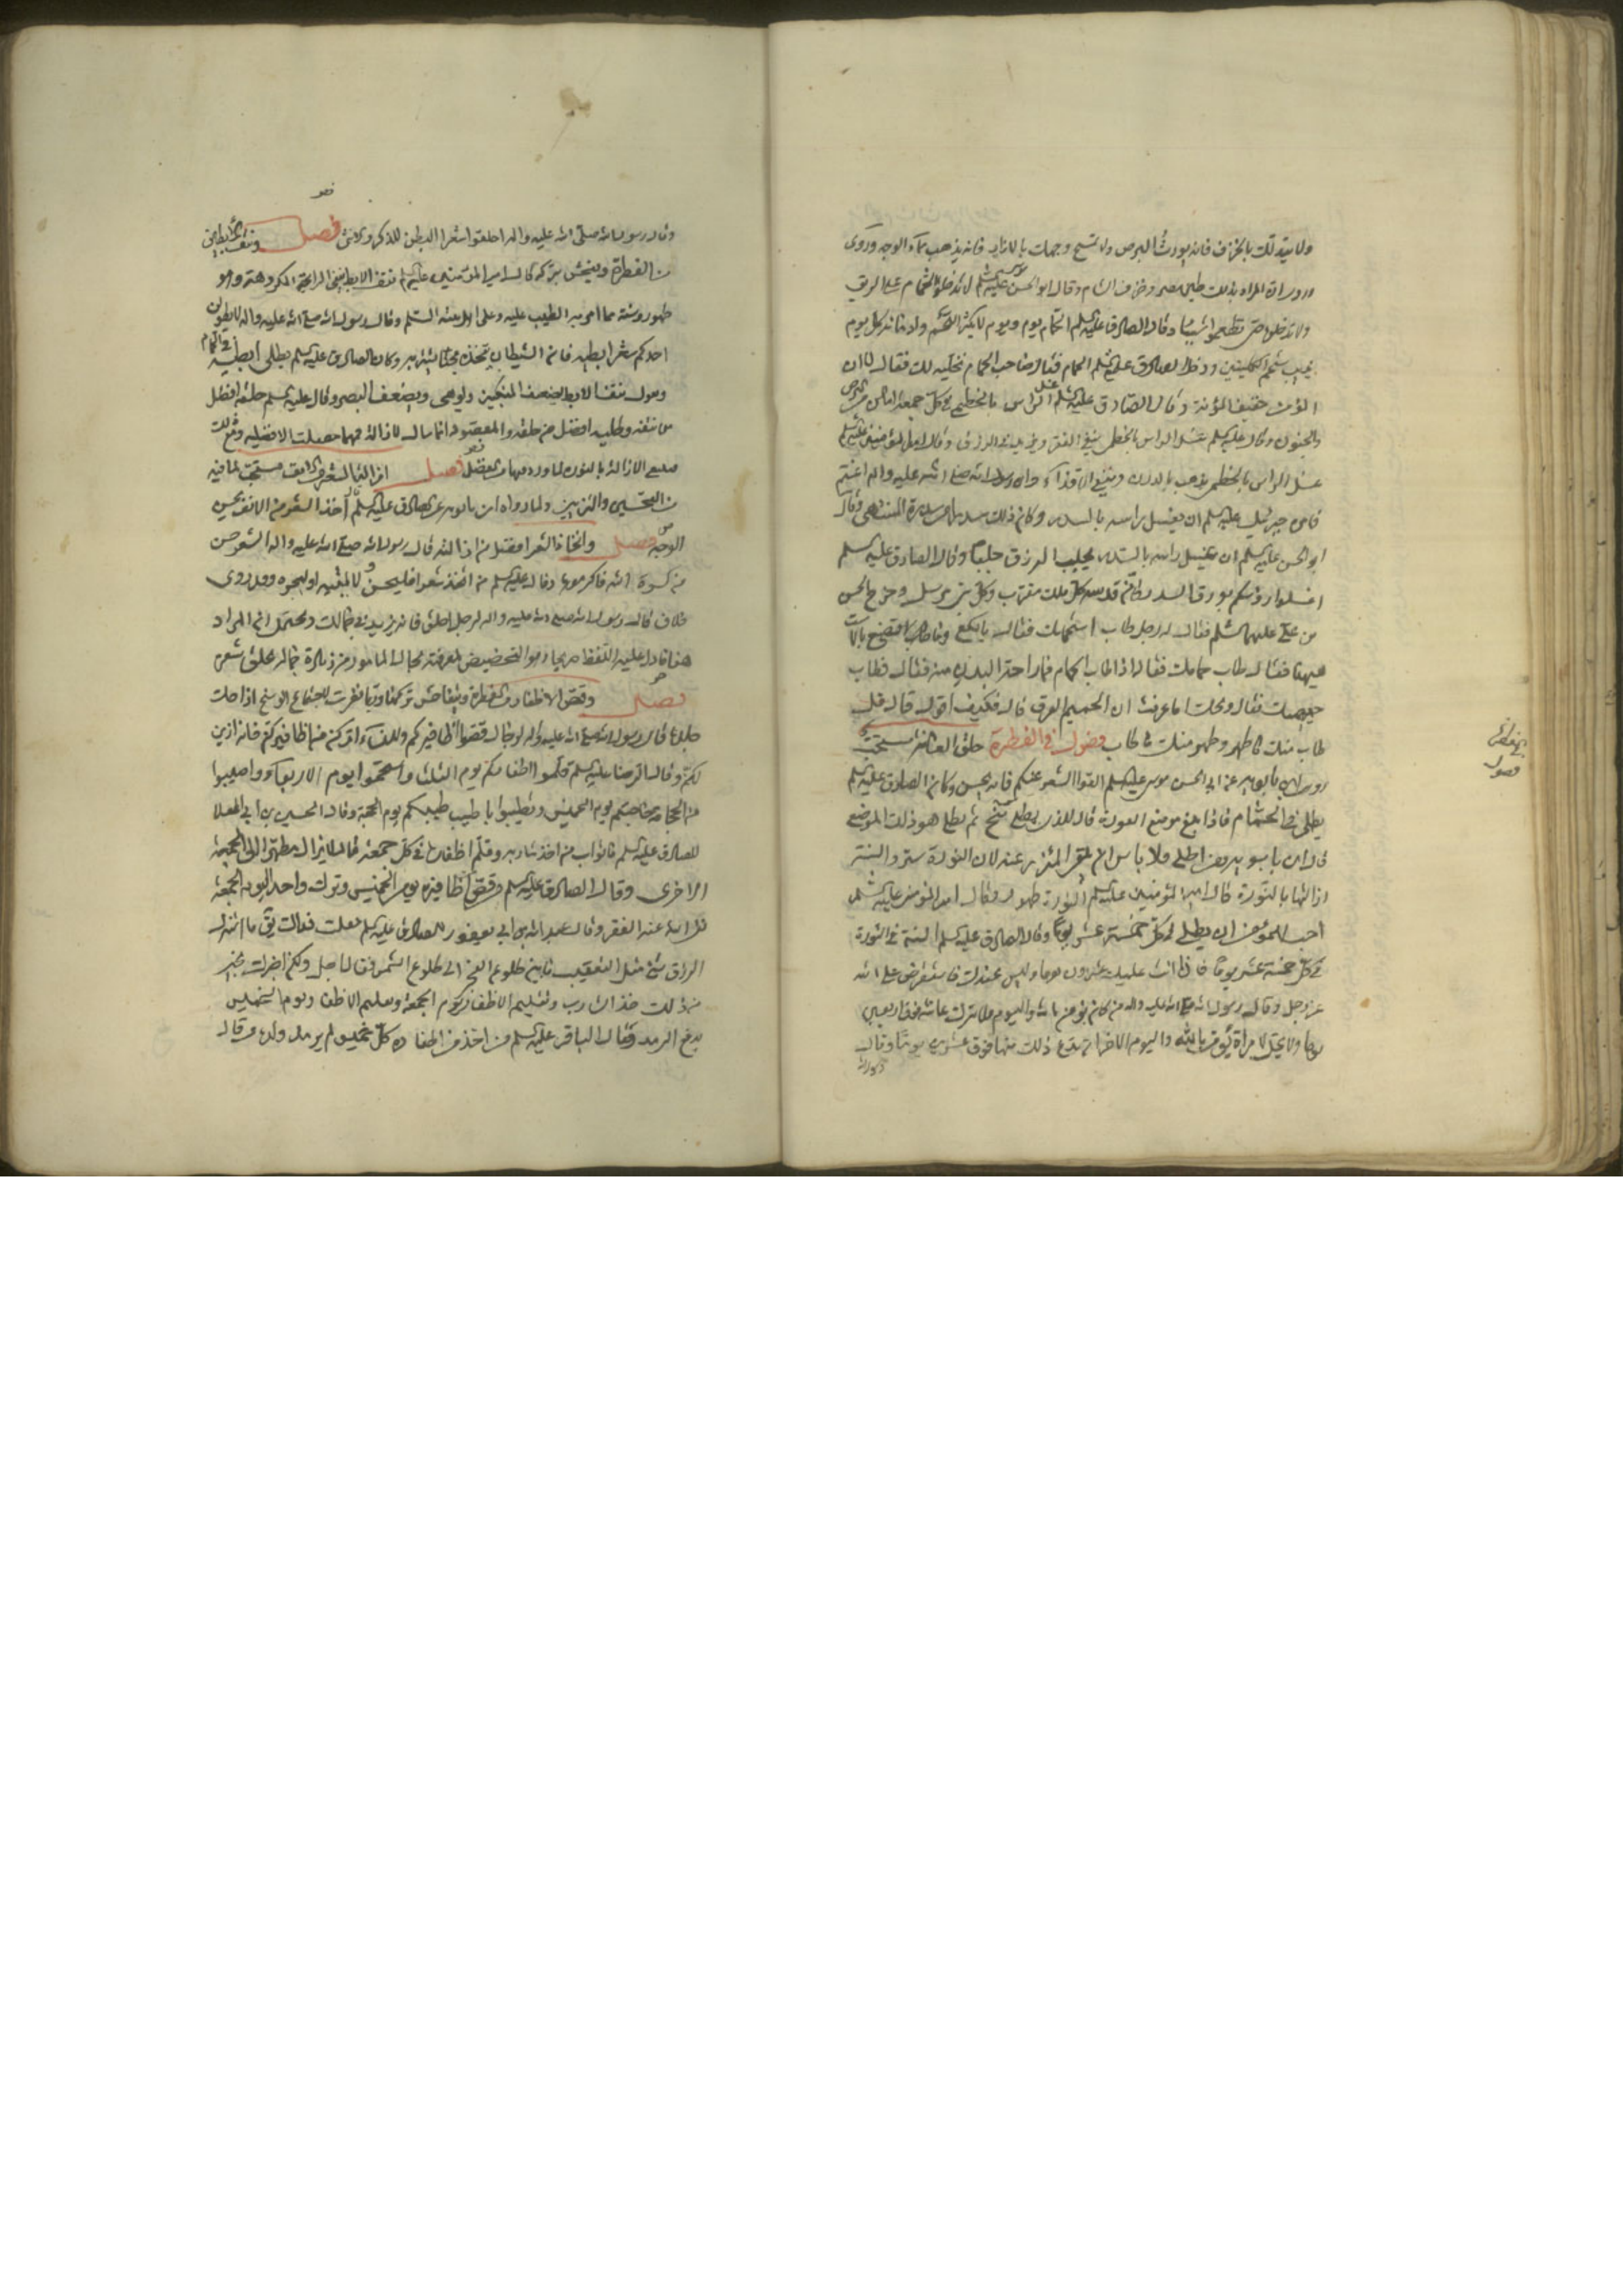 ولا يتدلك بالخزف فانه يورث البرص ولا تمسح وجهك بالازار فانه يذهب بماء الوجه وروى
ان المراد بذلك طين مصر وخزف الشام وقال ابو الحسن موسى عليه السلم لا تدخلوا الحمام على الريق
ولا تدخلوه حتى تطعموا شيئا وقال الصادق عليه السلم الحمام يوم ويوم لا يكثر اللحم وادمانه كل يوم
يذيب شحم الكليتين ودخل الصادق عليه السلم الحمام فقال صاحب الحمام نخليه لك فقال لا ان
المؤمن خفيف المؤنة وقال الصادق عليه السلم غسل الراس بالخطمى في كل جمعة امان من البرص
والجنون وقال عليه السلم غسل الراس بالخطمى ينفى الفقر ويزيد في الرزق وقال امير المؤمنين عليه السلم
غسل الراس بالخطمى يذهب بالدرن وينفى الاقذاء وان رسول الله صلى الله عليه واله اغتم
فامره جبرئيل عليه السلم ان يغسل راسه بالسدر وكان ذلك سدرا من سدرة المنتهى وقال
ابو الحسن عليه السلم ان غسل راسه بالسدر يجلب الرزق جلبا وقال الصادق عليه السلم
اغسلوا رؤسكم بورق السدر فانه قدسه كل ملك مقرب وكل نبى مرسل وخرج الحسن
بن على عليهما السلم فقال له رجل طاب استحمامك فقال يا لكع وما تصنع بالاست
هيهنا فقال طاب حمامك فقال اذا طاب الحمام فما راحة البدن منه فقال فطاب
حميمك فقال ويحك اما عرفت ان الحميم العرق قال فكيف اقول قال قل
طاب منك ما طهر وطهر منك ما طاب فصول في الفطرة حلق العانة مستحب
روى ابن بابويه عن ابى الحسن موسى عليه السلم القوا الشعر عنكم فانه يحسن وكان الصادق عليه السلم
يطلى في الحمام فاذا بلغ موضع العورة قال للذى يطلى تنح ثم يطلى هو ذلك الموضع
قال ابن بابويه ومن اطلى فلا باس ان يلقى المئزر عنه لان النورة ستر والستر
ازالتها بالنورة قال امير المؤمنين عليه السلم النورة طهور وقال امير المؤمنين عليه السلم
احب للمؤمن ان يطلى في كل خمسة عشر يوما وقال الصادق عليه السلم السنة في النورة
في كل خمسة عشر يوما فاذا اتت عليك عشرون يوما وليس عندك فاستقرض على الله
عز وجل وقال رسول الله صلى الله عليه واله من كان يؤمن بالله واليوم فلا يترك عانته فوق اربعين
يوما ولا يحل لامراة تؤمن بالله واليوم الاخر ان تدع ذلك منها فوق عشرين يوما وقال
فصول
وقال رسول الله صلى الله عليه واله احلقوا شعر البطن للذكر والانثى فصل ونتف الابطين
من الفطرة ويفحش تركه قال امير المؤمنين عليه السلم نتف الابط ينفى الرائحة المكروهة وهو
طهور وسنة مما امر به الطيب عليه وعلى اهل بيته السلم وقال رسول الله صلى الله عليه واله لا يطولن
احدكم شعر ابطيه فان الشيطان يتخذه مجنا يستتر به وكان الصادق عليه السلم يطلى ابطيه في الحمام
ويقول نتف الابط يضعف المنكبين ويوهى ويضعف البصر وقال عليه السلم حلقه افضل
من نتفه وطليه افضل من حلقه والمقصود انما
الازالة بالنورة لما ورد فصل ازالة الشعر من الانف مستحب لما فيه
من التحسين والتزيين ولما رواه ابن بابويه عن الصادق عليه السلم قال اخذ الشعر من الانف يحسن
الوجه فصل واتخاذ الشعر افضل من ازالته قال رسول الله صلى الله عليه واله الشعر الحسن
من كسوة الله فاكرموه وقال عليه السلم من اتخذ شعرا فليحسن ولايته او ليجزه وقد روى
خلاف قال رسول الله صلى الله عليه واله لرجل احلق فانه يزيد في جمالك ويحتمل ان المراد
هنا ما دل عليه اللفظ صريحا وهو التخصيص لمعرفته بحال المامور من زيادة جماله بحلق شعره
فصل وقص الاظفار من الفطرة ويتفاحش تركها وربما نفرت لاجتماع الوسخ اذا حلت
قال رسول الله صلى الله عليه واله للرجال قصوا اظافيركم وللنساء اتركن من اظافيركن فانه ازين
لكن وقال الرضا عليه السلم قلموا اظفاركم يوم الثلثا واستحموا يوم الاربعاء واصيبوا
من الحجامة حاجتكم يوم الخميس وتطيبوا باطيب طيبكم يوم الجمعة وقال الحسين بن ابى العلا
للصادق عليه السلم ما ثواب من اخذ شاربه وقلم اظفاره في كل جمعة قال لا يزال مطهرا الى الجمعة
الاخرى وقال الصادق عليه السلم من قص اظافيره يوم الخميس وترك واحدا ليوم الجمعة
نفى الله عنه الفقر وقال عبد الله بن ابى يعفور للصادق عليه السلم جعلت فداك يق ما استنزل
الرزق شئ مثل التعقيب ما بين طلوع الفجر الى طلوع الشمس فقال اجل ولكن اخبرك بخير
من ذلك اخذ الشارب وتقليم الاظفار يوم الجمعة وتقليم الاظفار يوم الخميس
يدفع الرمد وقال الباقر عليه السلم من اخذ من اظفاره كل خميس لم يرمد ولده وقال